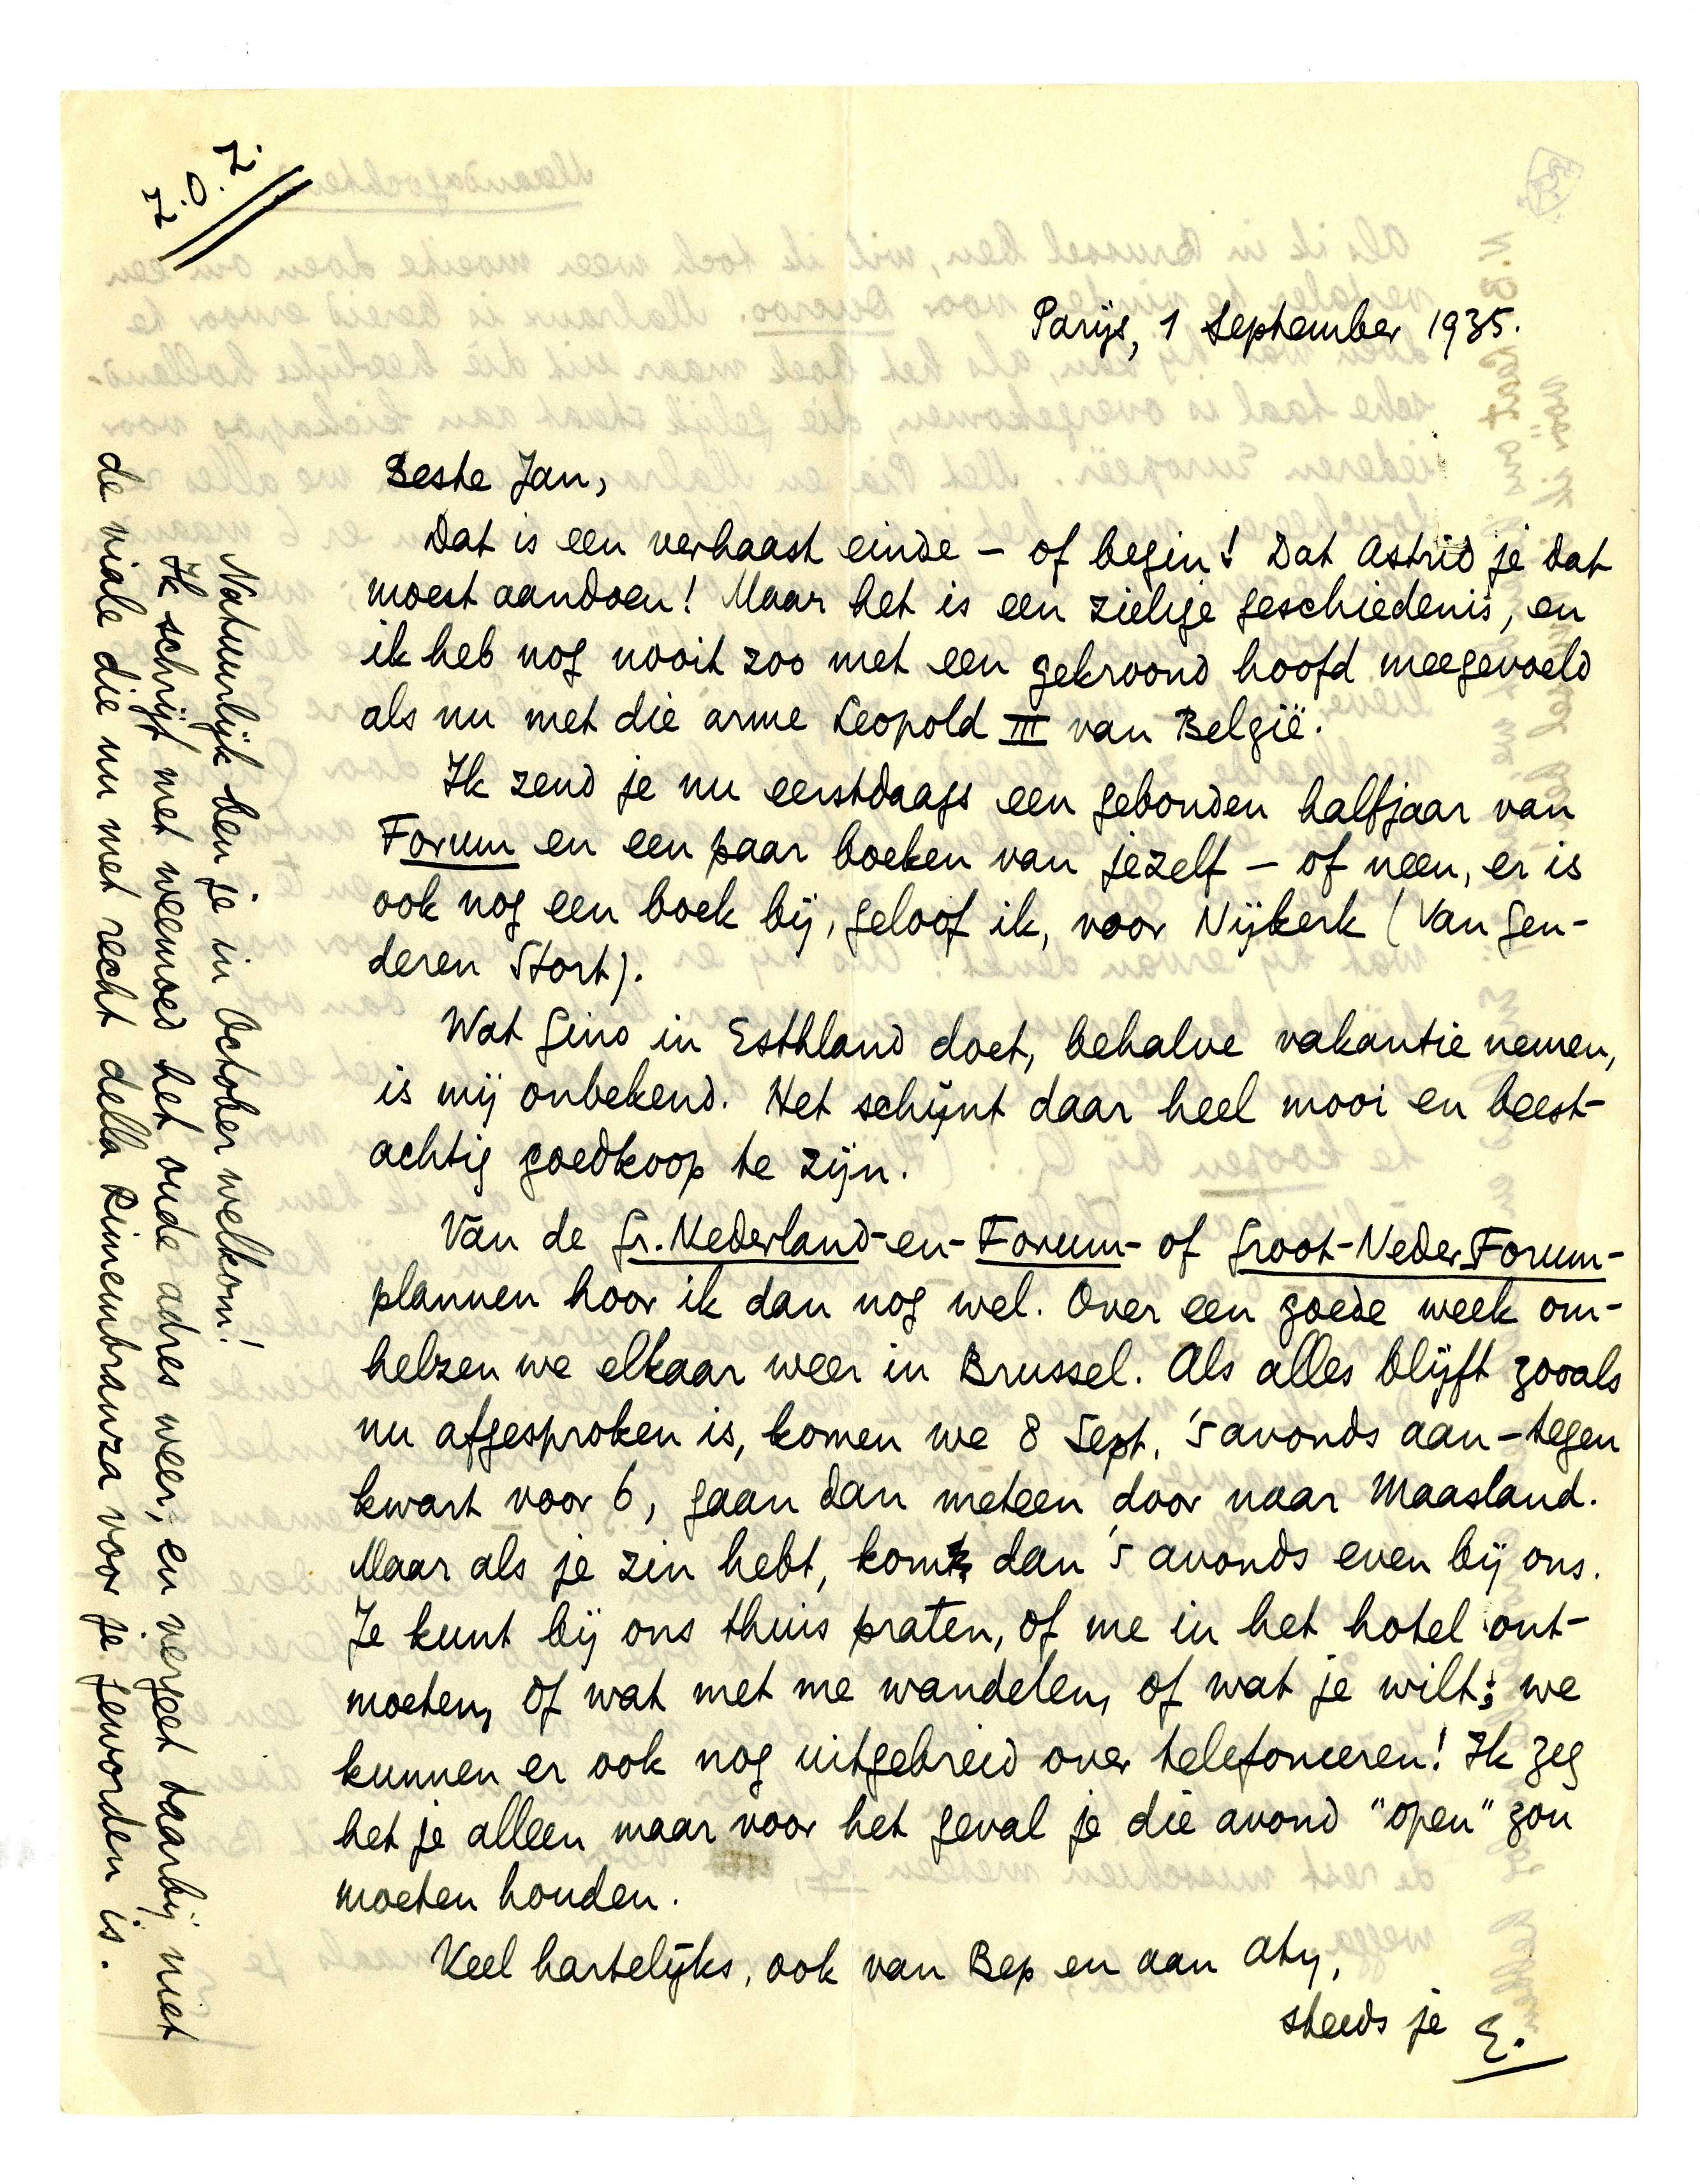 Z.
O.
Z.
Parijs, 1 September 1935.
Beste Jan,
Dat is een verhaast einde – of begin! Dat Astrid je dat
moest aandoen! Maar het is een zielige geschiedenis, en
ik heb nog nooit zoo met een gekroond hoofd meegevoeld
als nu met die arme Leopold III van België.
Ik zend je nu eerstdaags een gebonden halfjaar van
Forum en een paar boeken van jezelf – of neen, er is
ook nog een boek bij, geloof ik, voor Nijkerk (Van Gen-
deren Stort).
Wat Gino in Esthland doet, behalve vakantie nemen,
is mij onbekend. Het schijnt daar heel mooi en beest-
achtig goedkoop te zijn.
Van de Gr.Nederland-en-Forum- of Groot-NederForum-
plannen hoor ik dan nog wel. Over een goede week om-
helzen we elkaar weer in Brussel. Als alles blijft zooals
nu afgesproken is, komen we 8 Sept. 's avonds aan – tegen
kwart voor 6, gaan dan meteen door naar Maasland.
Maar als je zin hebt, kom dan 's avonds even bij ons.
Je kunt bij ons thuis praten, of me in het hotel ont-
moeten, of wat met me wandelen, of wat je wilt; we
kunnen er ook nog uitgebreid over telefoneeren! Ik zeg
het je alleen maar voor het geval je die avond "open" zou
moeten houden.
Veel hartelijks, ook van Bep en aan Aty,
steeds je E.
Natuurlijk ben je in October welkom!
Ik schrijf met weemoed het oude adres weer, en vergeet daarbij niet
de viale die nu met recht della Rimembranza voor je geworden is.